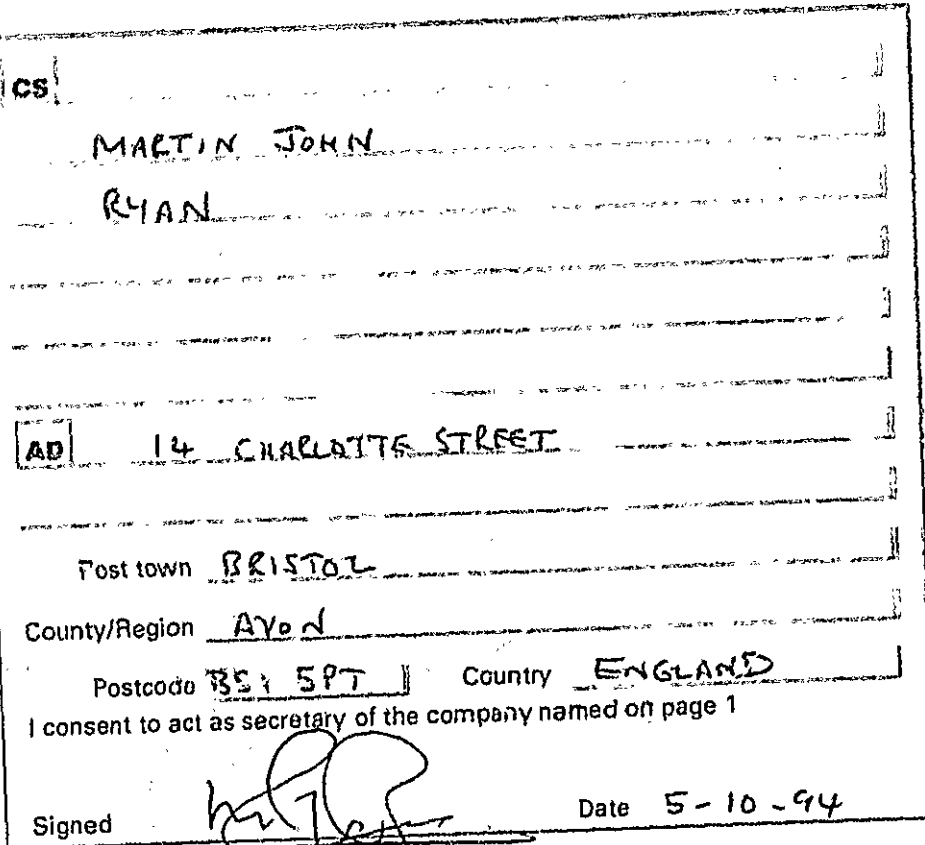 CS
MARTIN JOHN
RYAN
AD 14 CHARLOTTE STREET
Post town BRISTOL
County/Region AVON
Postcode BS1 5PT Country ENGLAND
I consent to act as secretary of the company named on page 1
Signed Date 5-10-94